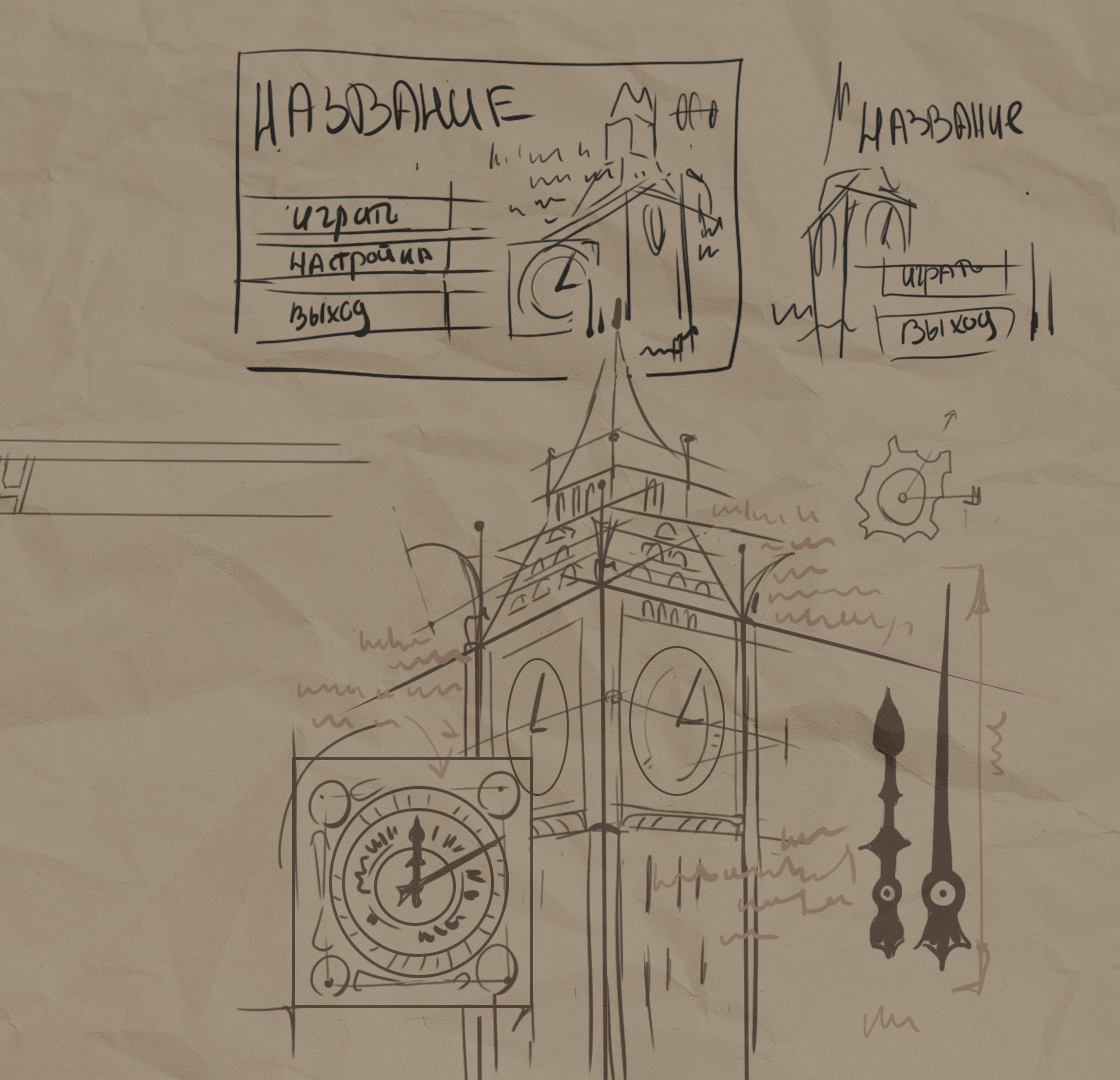 НАЗВАНИЕ
играть
настройка
выход
НАЗВАНИЕ
играть
выход